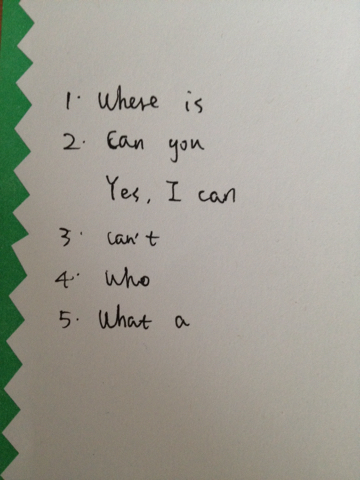 1. Where is
2. Can you
Yes, I can
3. can't
4. Who
5. What a